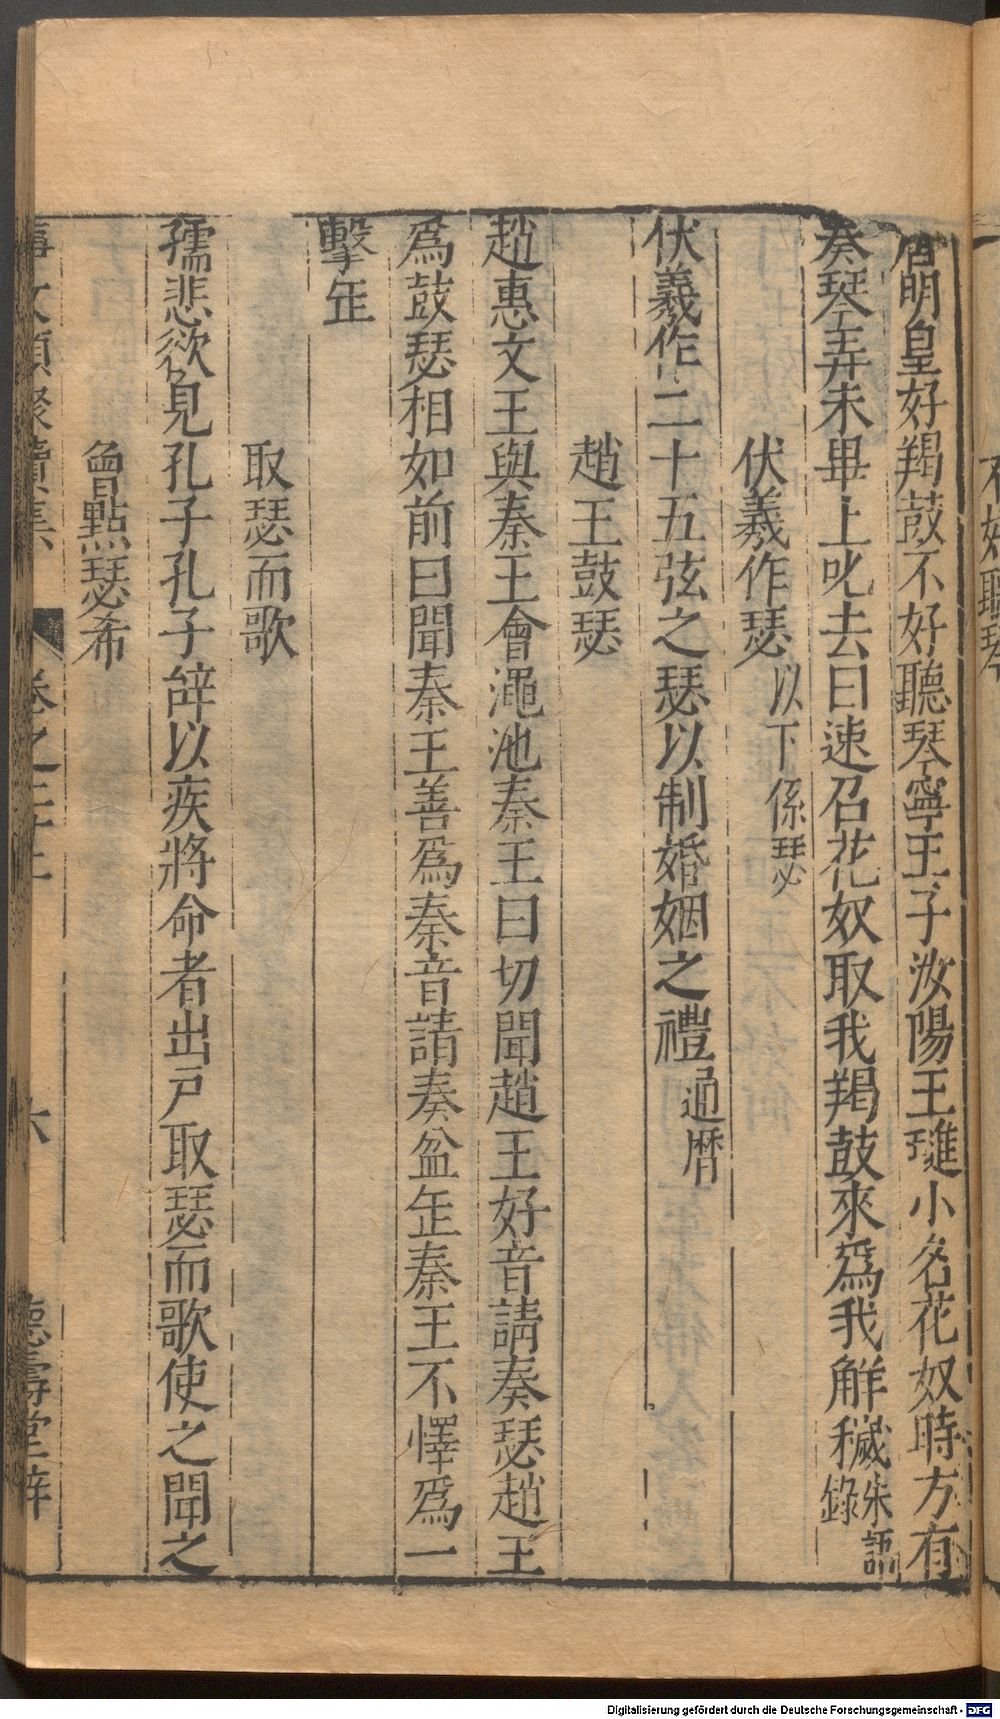 不好聽琴
唐明皇好羯鼓不好聽琴寧王子汝陽王璡小名花奴時方有
奏琴弄未畢上叱去曰速召花奴取我羯鼓來爲我解穢
朱語錄
伏羲作瑟以下係瑟
伏羲作二十五弦之瑟以制婚姻之禮通曆
趙王鼓瑟
趙惠文王與秦王會澠池秦王曰切聞趙王好音請奏瑟趙王
爲鼓瑟相如前曰聞秦王善爲秦音請奏盆缶秦王不懌爲一
擊缶
取瑟而歌
孺悲欲見孔子孔子辝以疾將命者出戸取瑟而歌使之聞之
曾點瑟希
事文類聚續集 卷之二十二 六 德壽堂梓
Digitalisierung gefördert durch die Deutsche Forschungsgemeinschaft - DFG